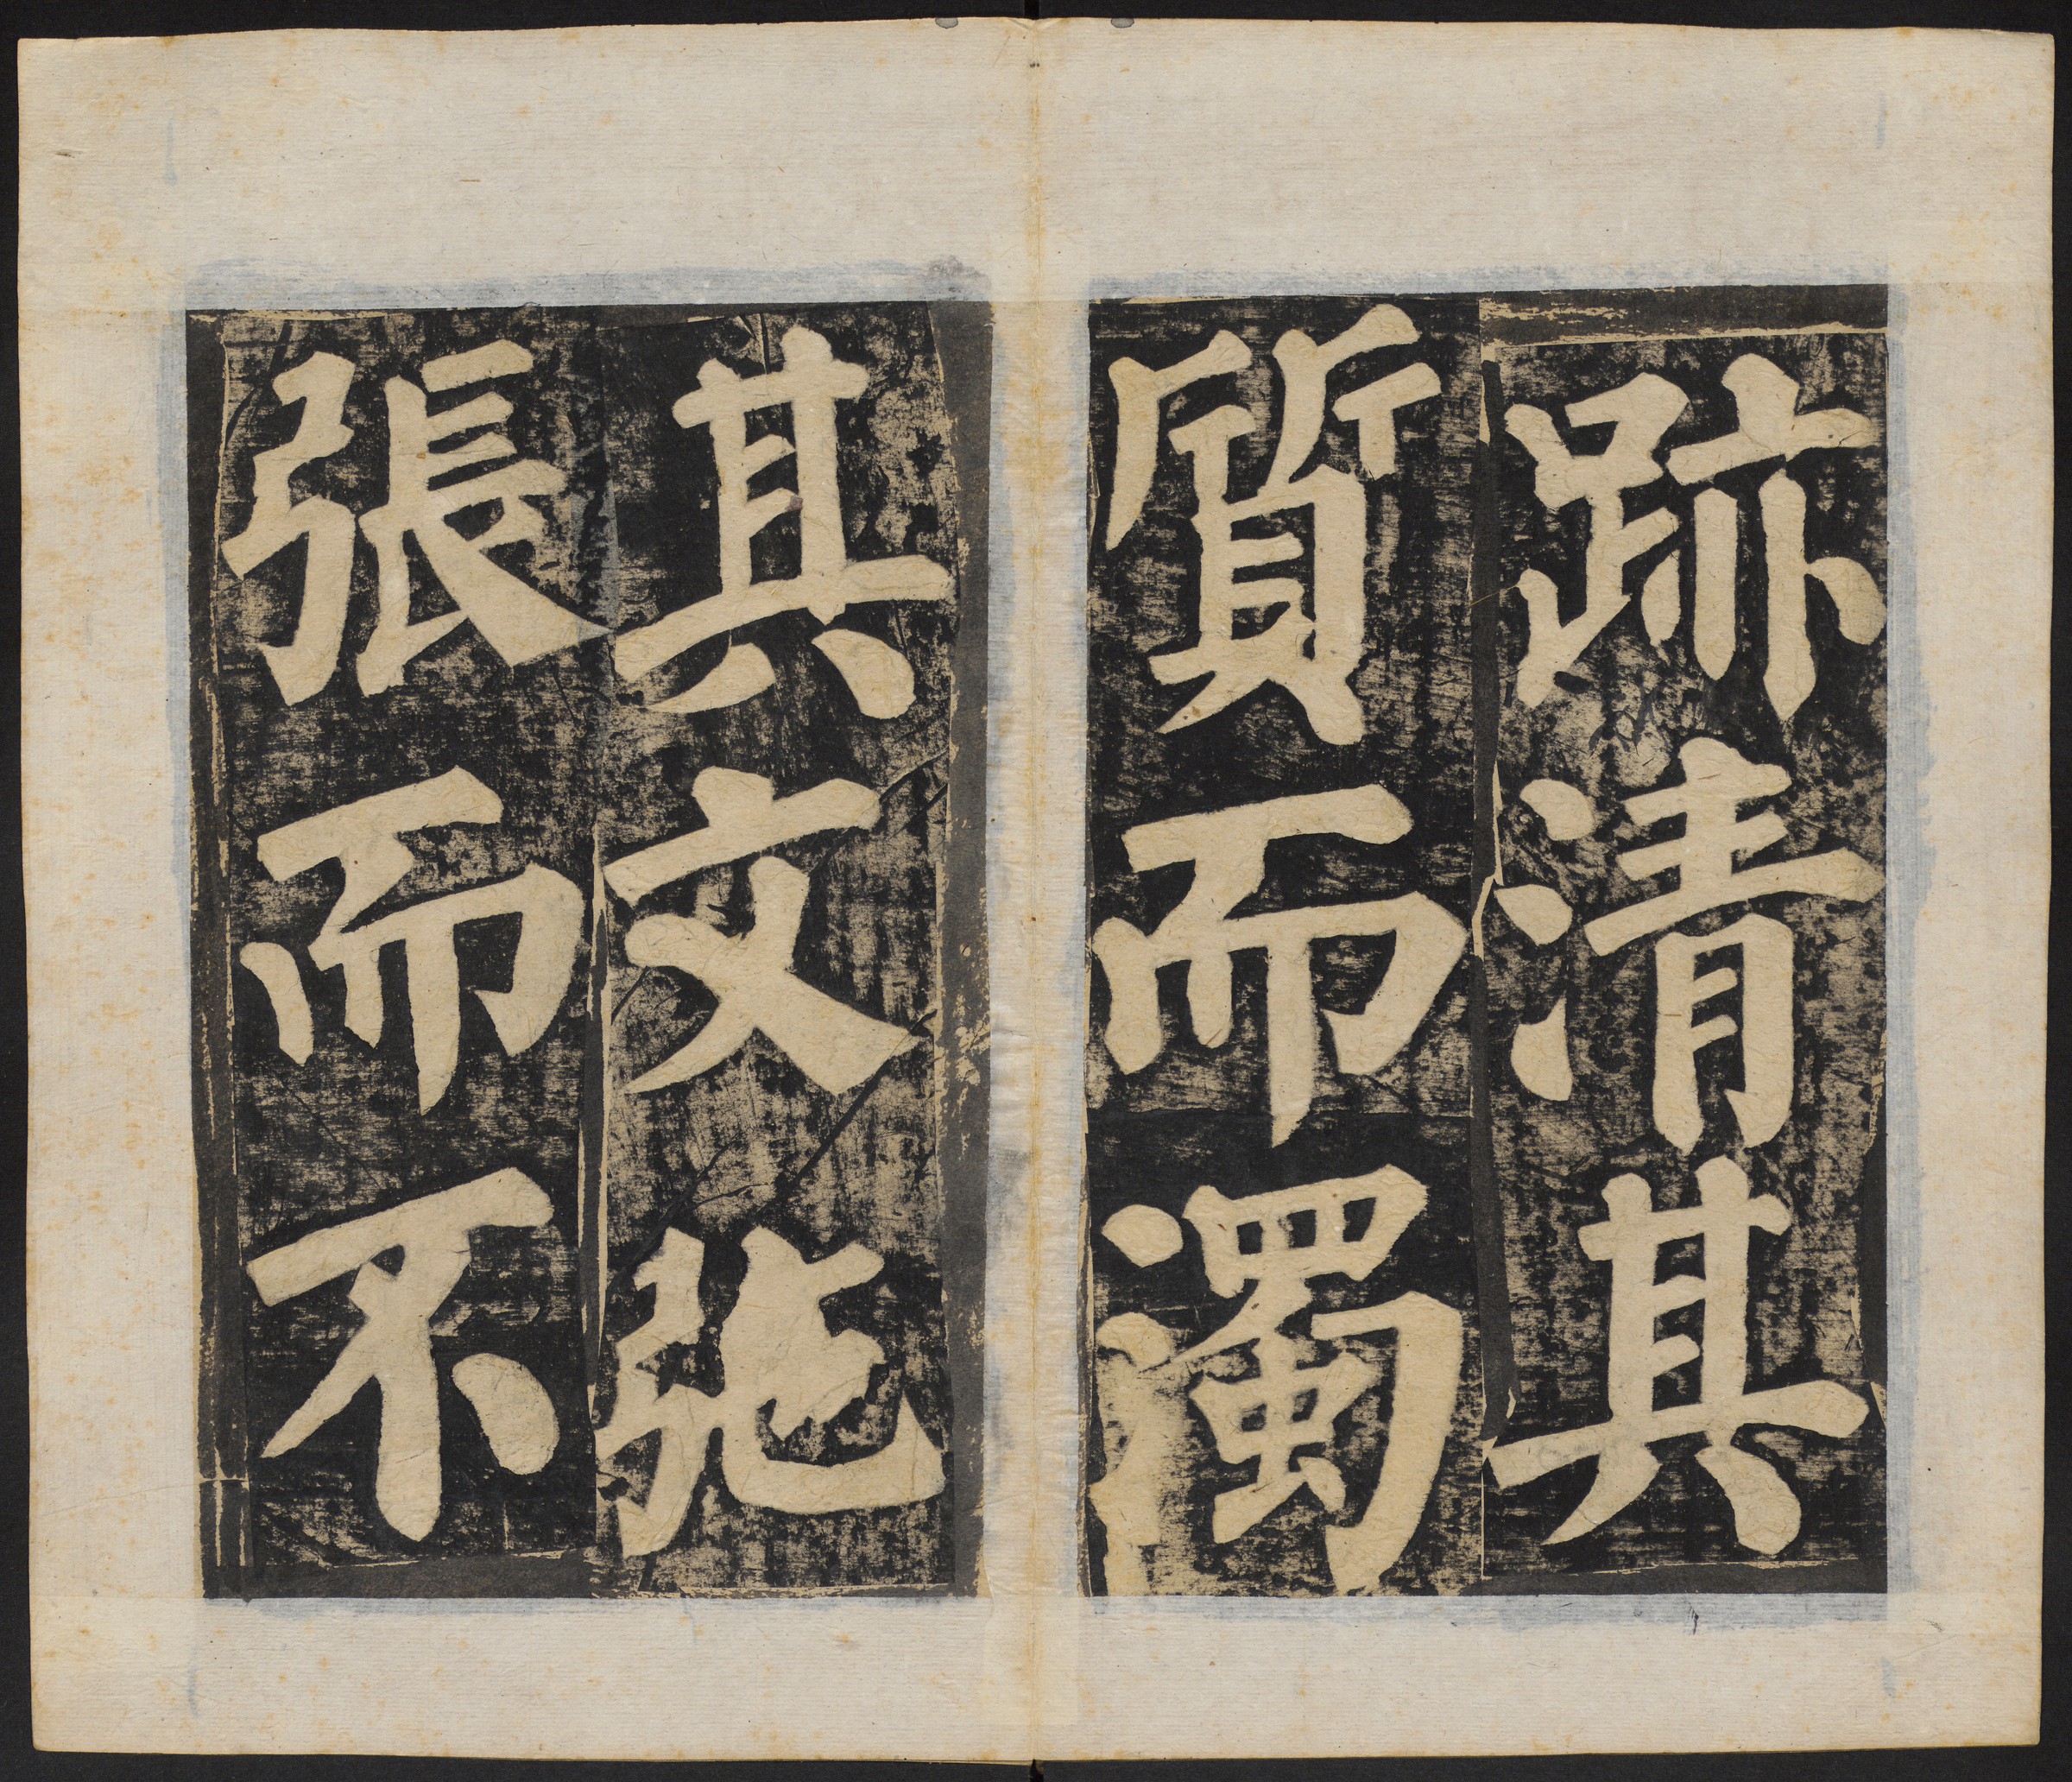 跡清其
質而濁
其文弛
張而不